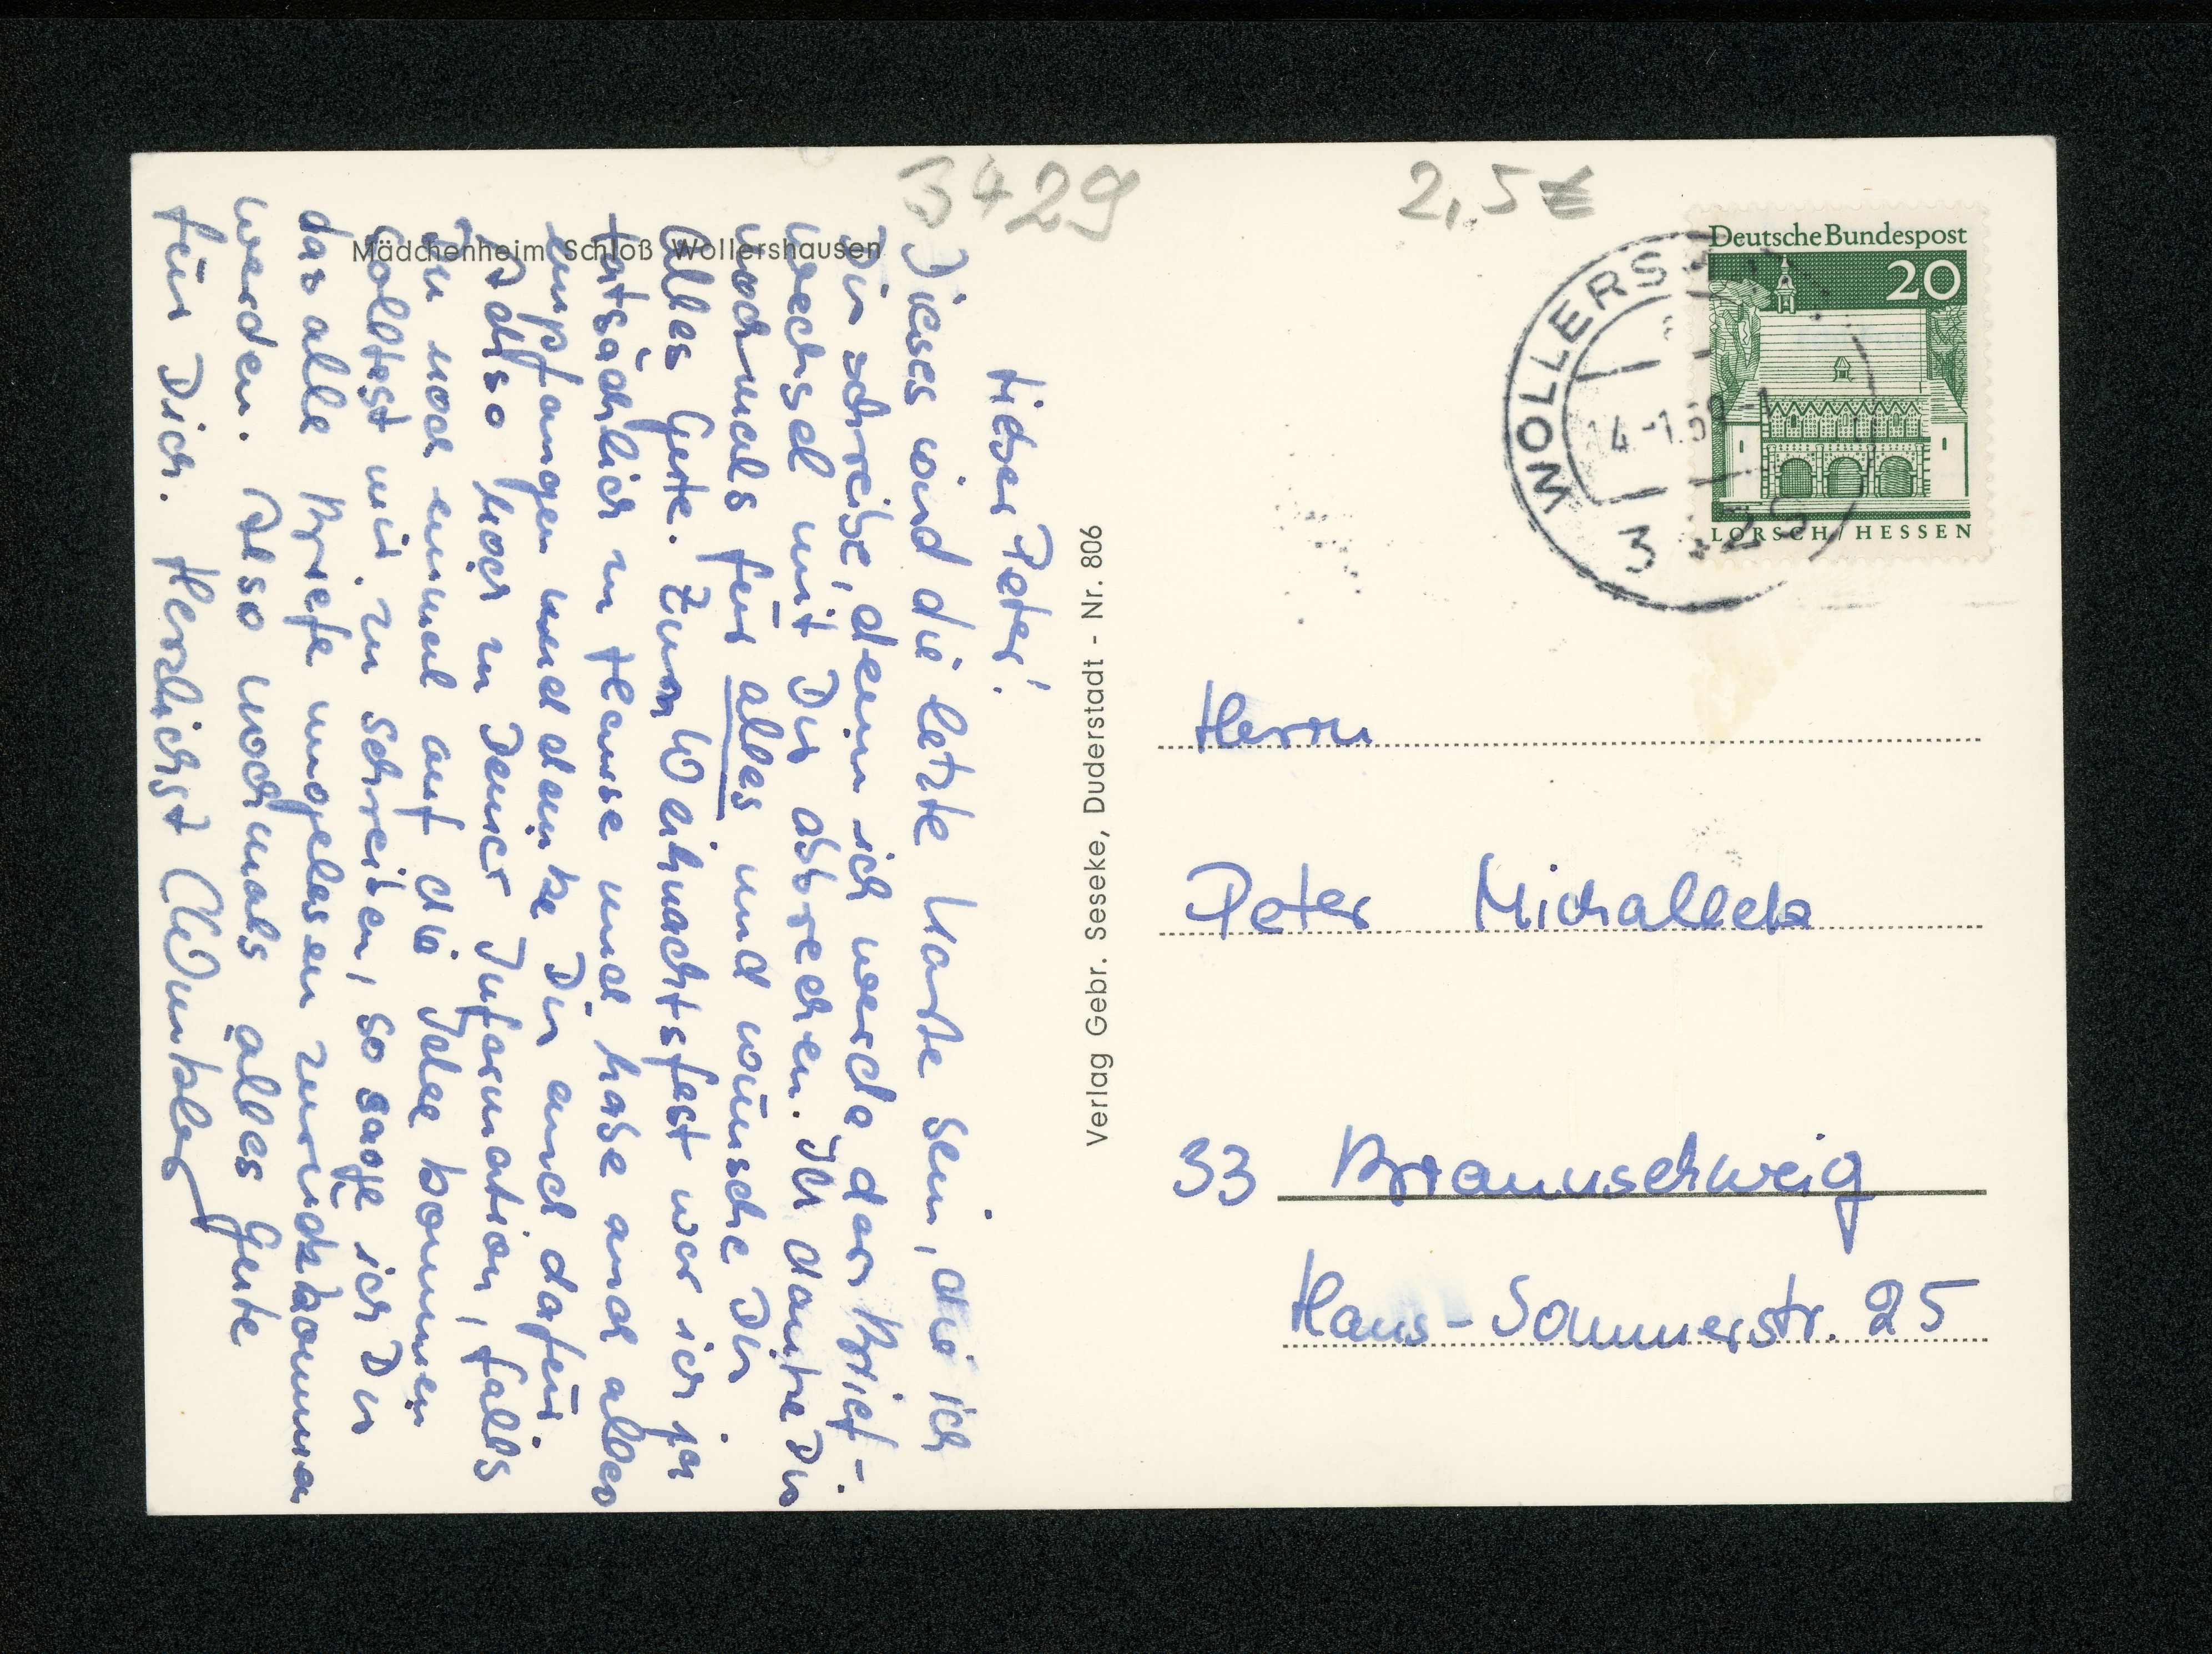 3429
2,5€
Mädchenheim Schloß Wollershausen
Lieber Peter!
Dieses wird die letzte Karte sein, die ich
Dir schreibe, denn ich werde den Brief-
wechsel mit Dir abbrechen. Ich danke Dir
nochmals für alles und wünsche Dir
alles Gute. Zum Weihnachtsfest war ich ja
tatsächlich zu Hause und habe auch alles
empfangen und danke Dir auch dafür.
Also noch zu Deiner Information, falls
Du noch einmal auf die Idee kommen
solltest mir zu schreiben, so sage ich Dir
das alle Briefe ungelesen zurückkommen
werden. Also nochmals alles Gute
für Dich. Herzlichst
Verlag Gebr. Seseke, Duderstadt - Nr. 806
Deutsche Bundespost
20
LORSCH / HESSEN
WOLLERS
14.-1.69-1
Herrn
Peter Michalleck
33 Braunschweig
Hans-Sommerstr. 25